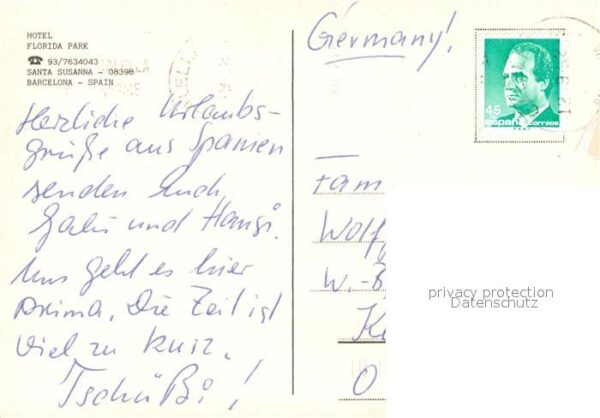 HOTEL
FLORIDA PARK
☎ 93/7634043
SANTA SUSANNA - 08398
BARCELONA - SPAIN
Germany!
45
españa correos
Herzliche Urlaubs-
grüße aus Spanien
senden Euch
Gabi und Hansi.
Uns geht es hier
prima. Die Zeit ist
viel zu kurz.
Tschüß!
Fam
Wolf
W.-
K
O
privacy protection
Datenschutz